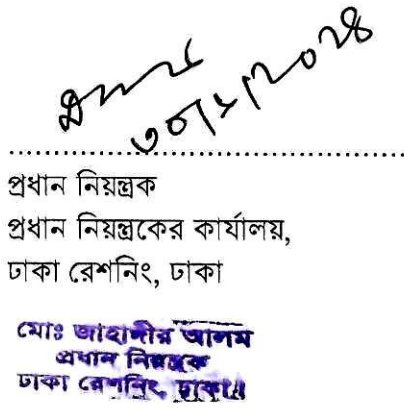 ৩০/১/২০২৪
প্রধান নিয়ন্ত্রক
প্রধান নিয়ন্ত্রকের কার্যালয়,
ঢাকা রেশনিং, ঢাকা
মোঃ জাহাঙ্গীর আলম
প্রধান নিয়ন্ত্রক
ঢাকা রেশনিং, ঢাকা।